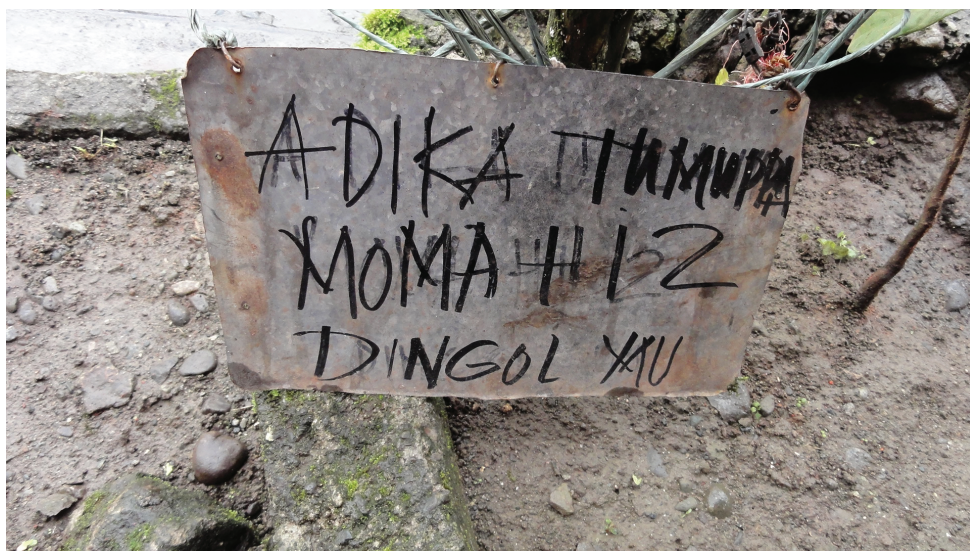 ADIKA TUMUPPA
MOMAHI IZ
DINGOL YAU